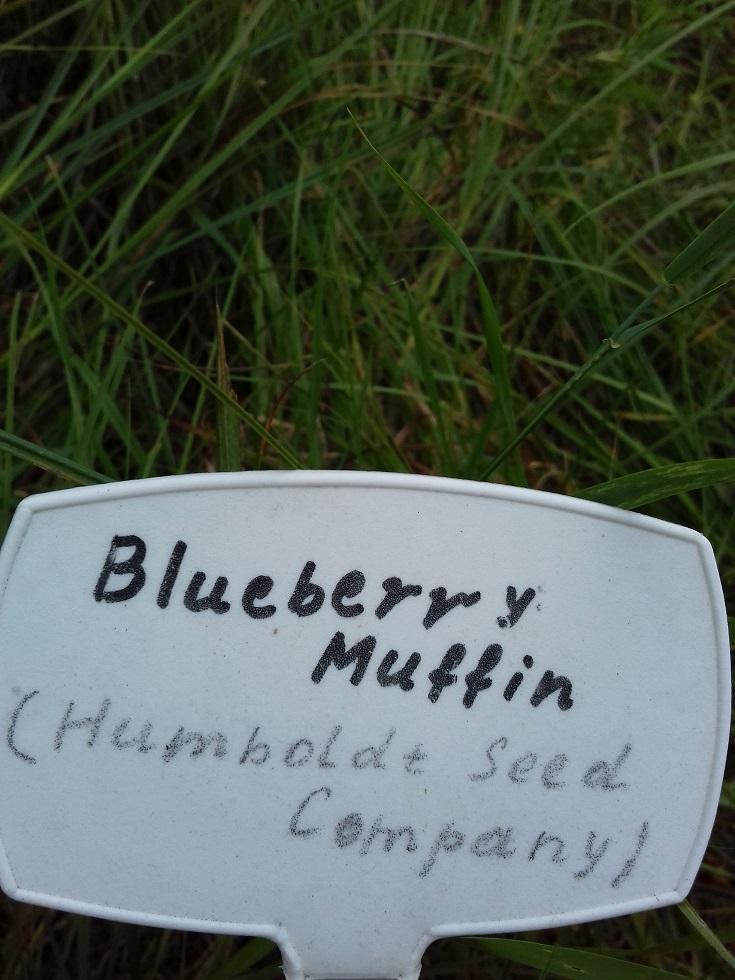 Blueberry
Muffin
(Humboldt Seed
Company)